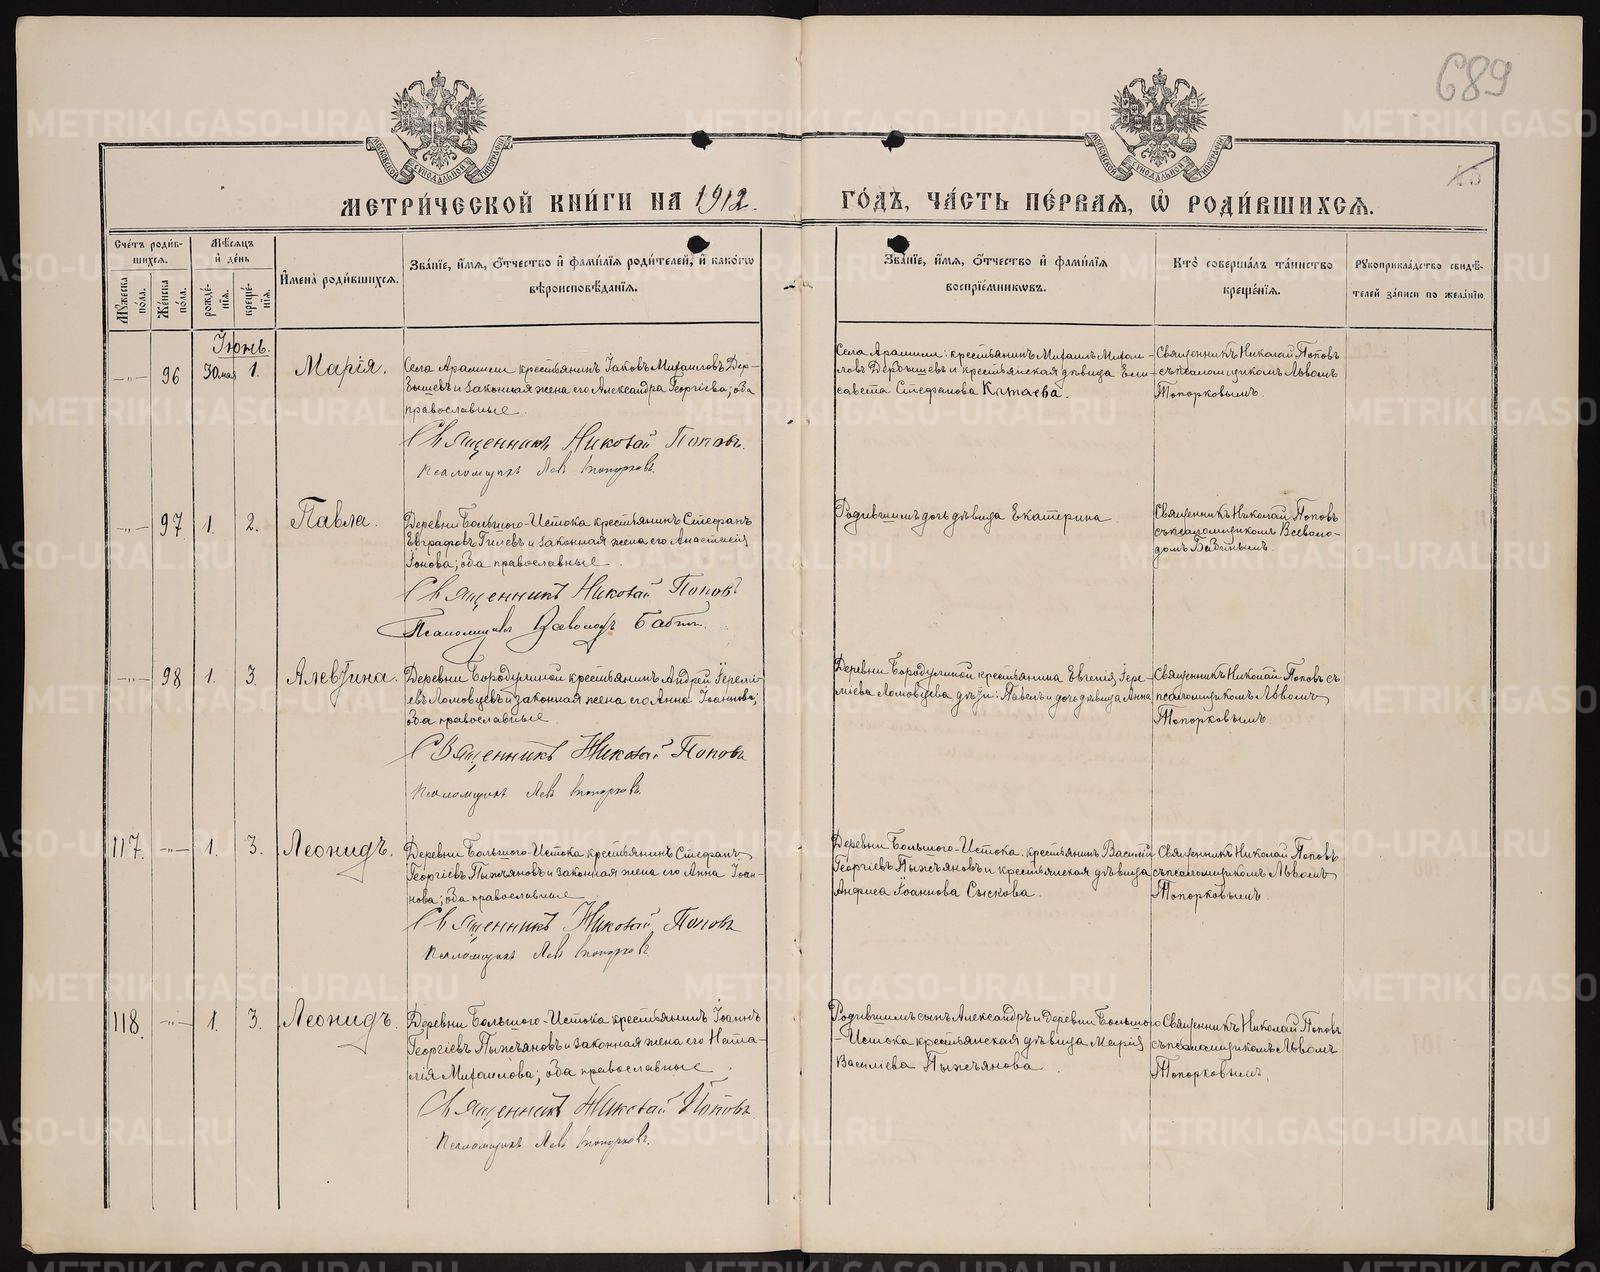 689
МЕТРИ́ЧЕСКОЙ КНИ́ГИ НА 1912.
ГО́ДЪ, ЧА́СТЬ ПЕ́РВАѦ, Ѡ҆ РОДИ́ВШИХСѦ.
Сче́тъ роди́в-
шихсѧ.
Мꙋ́жеска по́ла.
Же́нска по́ла.
Мѣ́сѧцъ
и҆ де́нь
рожде́-нїѧ.
креще́-нїѧ.
И҆мена̀ роди́вшихсѧ.
Зва́нїе, и҆́мѧ, ѻ҆́тчество и҆ фами́лїѧ роди́телей, и҆ како́гѡ
вѣроисповѣ́данїѧ.
Зва́нїе, и҆́мѧ, ѻ҆́тчество и҆ фами́лїѧ
воспрїе́мникѡвъ.
Кто̀ соверша́лъ та́инство
креще́нїѧ.
Рꙋкоприкла́дство свидѣ́-
телей за́писи по жела́нїю
Іюнь.
—„— 96 30 мая 1. Марія.
Села Арамили крестьянинъ Іаковъ Михаиловъ Дер-
бышевъ и законная жена его Александра Георгіева; оба
православные.
Священникъ Николай Поповъ.
Псаломщикъ Левъ Топорковъ.
Села Арамили: крестьянинъ Михаилъ Михаи-
ловъ Дербышевъ и крестьянская дѣвица Ели-
савета Стефанова Китаева.
Священникъ Николай Поповъ
съ псаломщикомъ Львомъ
Топорковымъ.
—„— 97 1. 2. Павла.
Деревни Большого-Истока крестьянинъ Стефанъ
Евграфовъ Гилевъ и законная жена его Анастасія
Іонова; оба православные.
Священникъ Николай Поповъ
Псаломщикъ Всеволодъ Бабинъ.
Родившимъ дочь дѣвица Екатерина
Священникъ Николай Поповъ
съ псаломщикомъ Всеволо-
домъ Бабинымъ.
—„— 98 1. 3. Алевѵтина.
Деревни Бородулиной крестьянинъ Андрей Іереми-
евъ Ломовцевъ и законная жена его Анна Іоаннова;
оба православные
Священникъ Николай Поповъ
Псаломщикъ Левъ Топорковъ.
Деревни Бородулиной крестьянина Евгенія Іере-
міева Ломовцева дѣти: Павелъ и дочь дѣвица Анна
Священникъ Николай Поповъ съ
псаломщикомъ Львомъ
Топорковымъ.
117. —„— 1. 3. Леонидъ.
Деревни Большого-Истока крестьянинъ Стефанъ
Георгіевъ Пыжьяновъ и законная жена его Анна Іоан-
нова; оба православные
Священникъ Николай Поповъ
Псаломщикъ Левъ Топорковъ.
Деревни Большого-Истока: крестьянинъ Василій
Георгіевъ Пыжьяновъ и крестьянская дѣвица
Анфиса Іоаннова Сыскова.
Священникъ Николай Поповъ
съ псаломщикомъ Львомъ
Топорковымъ.
118. —„— 1. 3. Леонидъ.
Деревни Большого-Истока крестьянинъ Іоаннъ
Георгіевъ Пыжьяновъ и законная жена его Ната-
лія Михаилова; оба православные.
Священникъ Николай Поповъ
Псаломщикъ Левъ Топорковъ.
Родившимъ сынъ Александръ и деревни Большого
-Истока крестьянская дѣвица Марія
Василіева Пыжьянова
Священникъ Николай Поповъ
съ псаломщикомъ Львомъ
Топорковымъ.